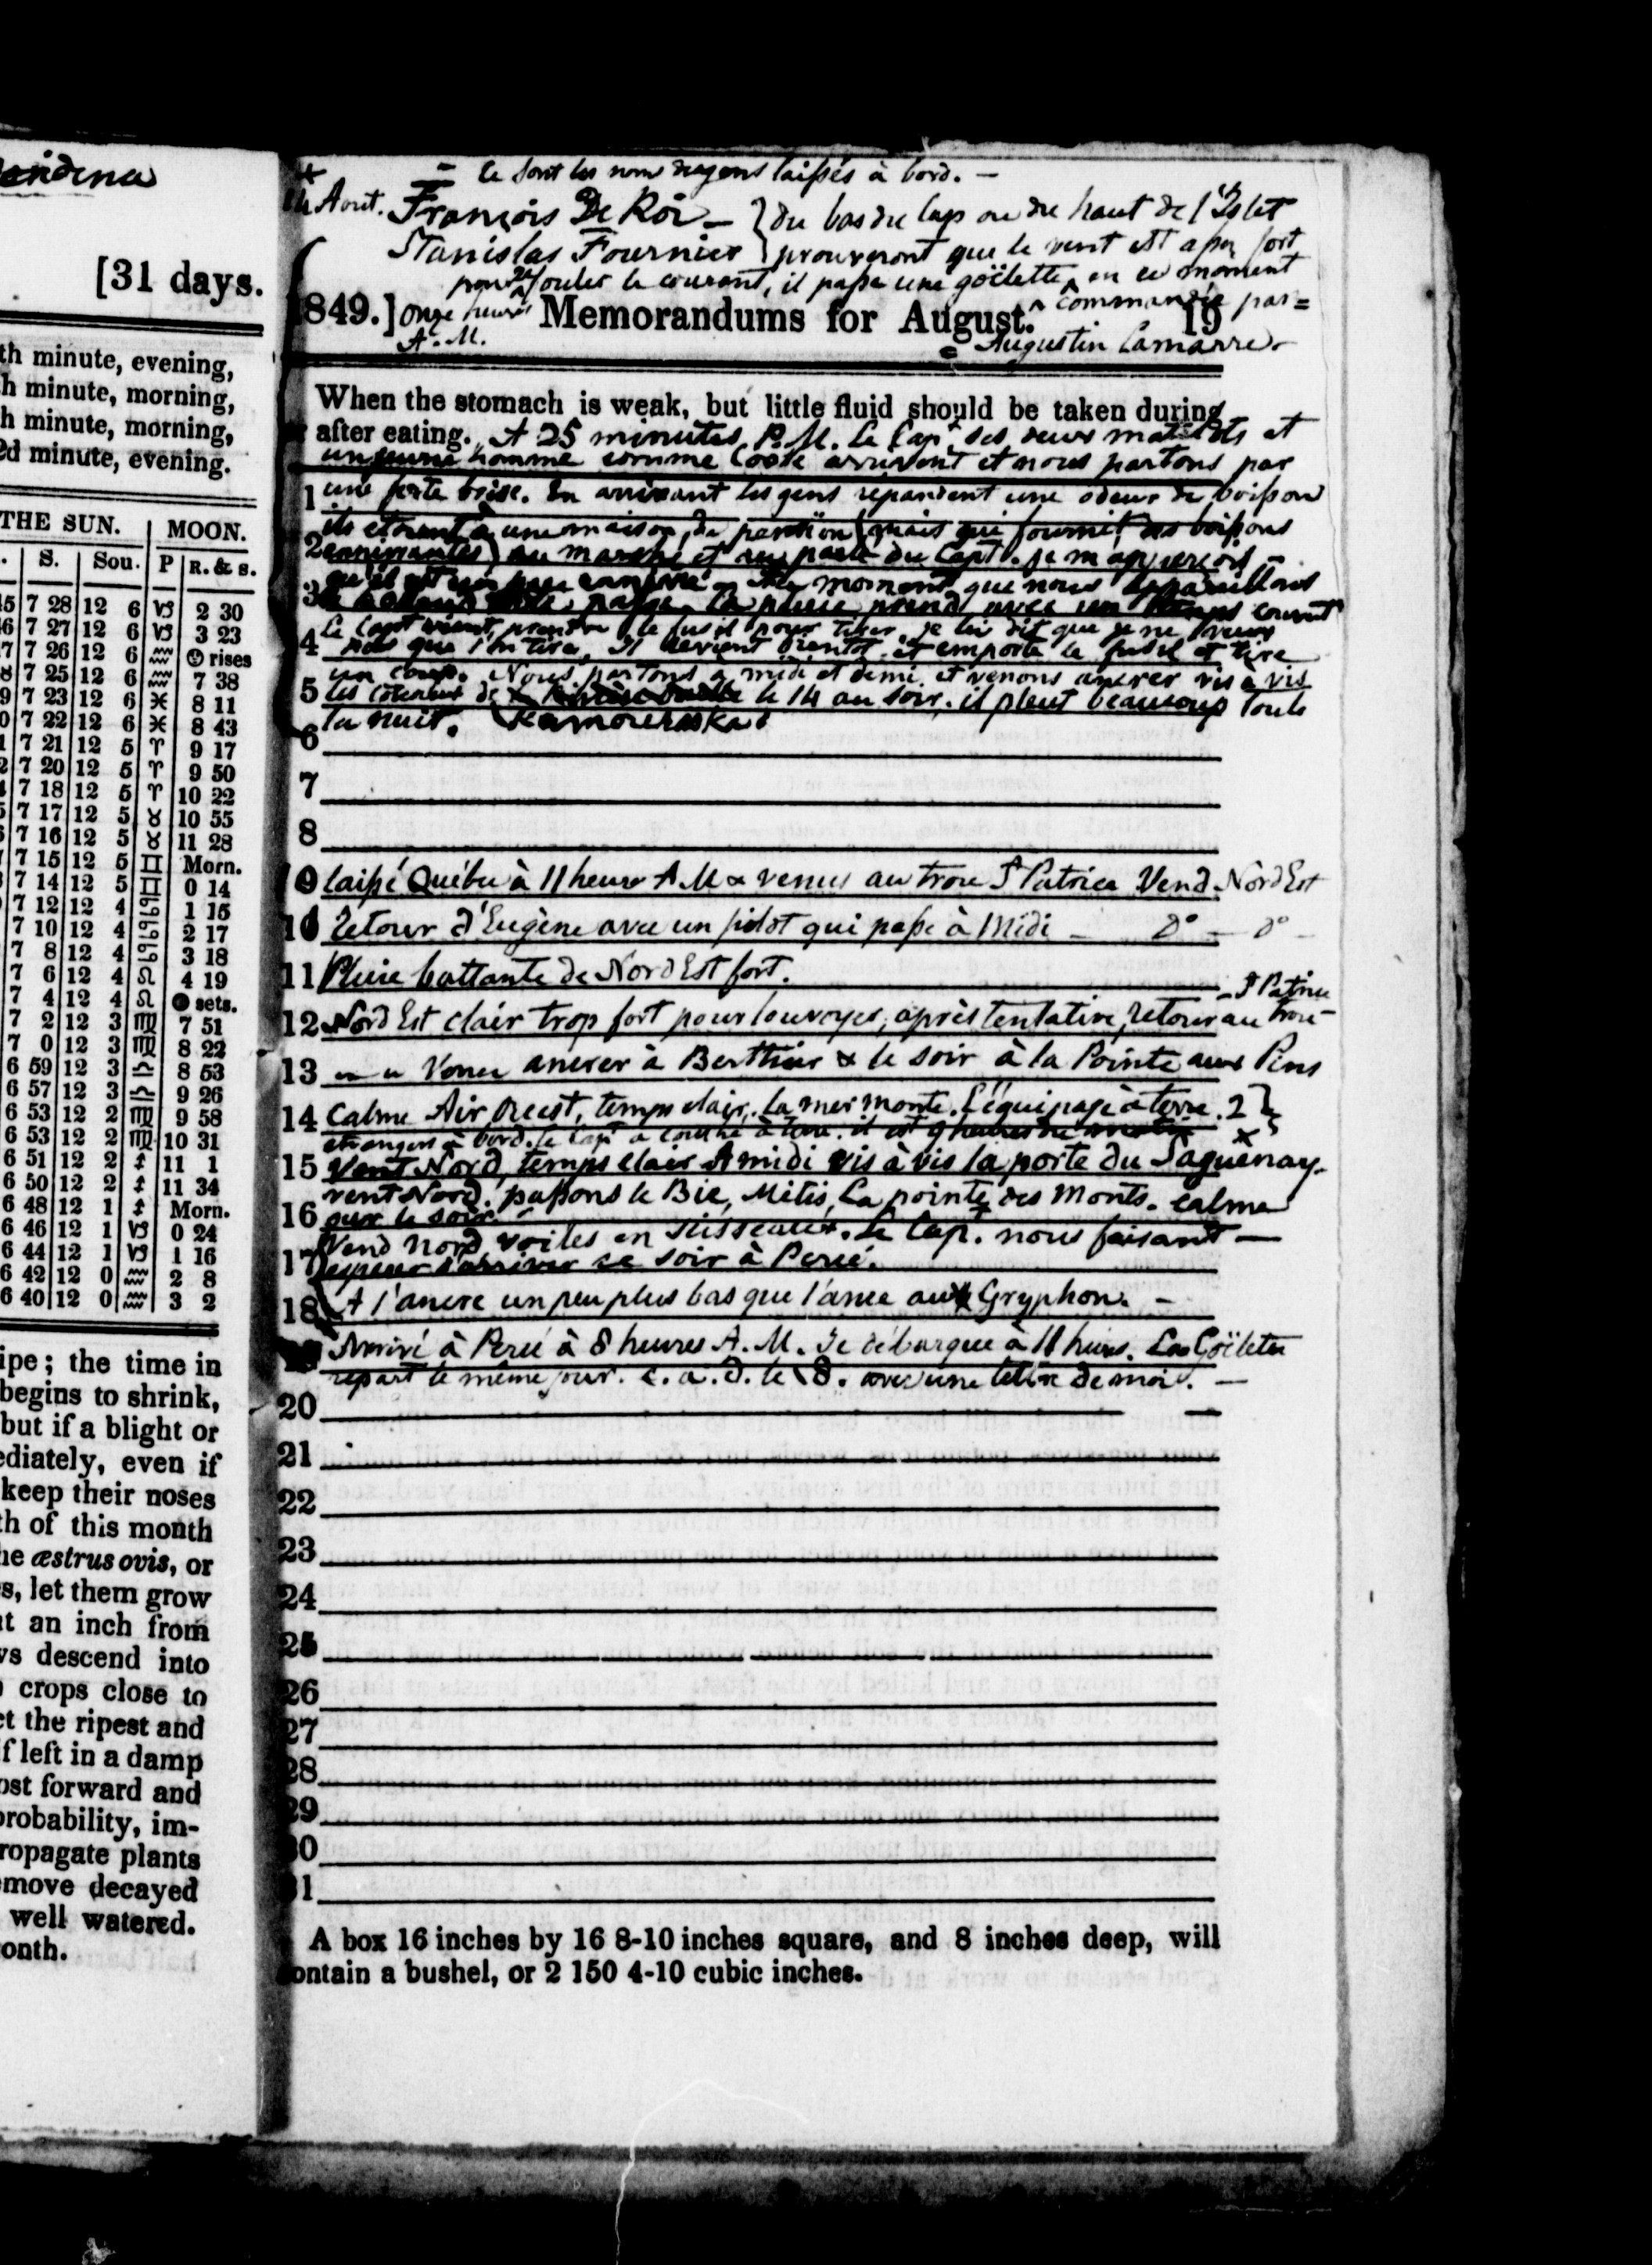 [31 days.
th minute, evening,
h minute, morning,
h minute, morning,
2d minute, evening.
THE SUN. | MOON.
S. | Sou. | P | R. & s.
5 7 28 12 6 ♑ 2 30
6 7 27 12 6 ♑ 3 23
7 7 26 12 6 ♒ rises
8 7 25 12 6 ♒ 7 38
9 7 23 12 6 ♓ 8 11
0 7 22 12 6 ♓ 8 43
1 7 21 12 5 ♈ 9 17
2 7 20 12 5 ♈ 9 50
4 7 18 12 5 ♈ 10 22
5 7 17 12 5 ♉ 10 55
6 7 16 12 5 ♉ 11 28
7 15 12 5 ♊ Morn.
7 14 12 5 ♊ 0 14
7 12 12 4 ♋ 1 15
7 10 12 4 ♋ 2 17
7 8 12 4 ♋ 3 18
7 6 12 4 ♌ 4 19
7 4 12 4 ♌ sets.
7 2 12 3 ♍ 7 51
7 0 12 3 ♍ 8 22
6 59 12 3 ♎ 8 53
6 57 12 3 ♎ 9 26
6 53 12 2 ♏ 9 58
6 53 12 2 ♏ 10 31
6 51 12 2 ♐ 11 1
6 50 12 2 ♐ 11 34
6 48 12 1 ♐ Morn.
6 46 12 1 ♑ 0 24
6 44 12 1 ♑ 1 16
6 42 12 0 ♒ 2 8
6 40 12 0 ♒ 3 2
ipe; the time in
begins to shrink,
but if a blight or
ediately, even if
keep their noses
th of this month
he æstrus ovis, or
s, let them grow
at an inch from
ws descend into
crops close to
ct the ripest and
if left in a damp
ost forward and
probability, im-
ropagate plants
move decayed
well watered.
onth.
= Ce sont les noms des gens laissés à bord. —
14 Aout. François De Roi — } du bas du Cap ou du haut de l'Islet
Stanislas Fournier } prouveront que le vent est assez fort
pour refouler le courant, il passe une goëlette en ce moment
849.] Onze heures A. M. Memorandums for August. 19
commandée par =
= Augustin Lamarre.
When the stomach is weak, but little fluid should be taken during
after eating. A 25 minutes P. M. Le Capt. ses deux matelots et
un jeune homme comme Cook arrivent et nous partons par
1 une forte brise. En arrivant les gens repandent une odeur de boisson
ils etoient à une maison de pension (mais qui fournit des boissons
2 enivrantes) au marche et au parle du Capt. je m'apperçois —
qu'il est un peu Au moment que nous appareillons
3 La pluie prend avec un temps couvert
Le Capt vient prendre le fusil pour tirer, je lui dit que je ne veux
4 pas que l'on tire, Il revient bientot et emporte le fusil et tire
un coup. Nous partons a midi et demi et venons ancrer vis a vis
5 les coteaux de le 14 au soir. il pleut beaucoup toute
la nuit. Kamouraska
6
7
8
9 laissé Québec à 11 heures A M & venus au trou St Patrice Vend Nord Est
10 Retour d'Eugène avec un pilot qui passe à Midi — do — do —
11 Pluie battante de Nord Est fort.
12 Nord Est clair trop fort pour louvoyer, après tentative, retour au trou — St Patrice
13 Venu ancrer à Berthier & le soir à la Pointe aux Pins
14 Calme Air Ouest, temps clair. La mer monte. L'équipage à terre. 2 }
etrangers à bord. Le Capt a couché à terre. il est 9 heures du matin ×
15 Vent Nord, temps clair A midi vis à vis la porte du Saguenay.
vent Nord. passons le Bic, Mitis, La pointe des Monts. calme
16 sur le soir.
Vend Nord, voiles en ciseaux. Le Capt. nous faisant —
17 esperer d'arriver ce soir à Percé.
18 A l'ancre un peu plus bas que l'ance aux Gryphon. —
Arrivé à Percé à 8 heures A. M. Je débarque à 11 heures. La Goëlette
repart le même jour. c. a. d. le 18. avec une lettre de moi. —
20
21
22
23
24
25
26
27
28
29
30
31
A box 16 inches by 16 8-10 inches square, and 8 inches deep, will
contain a bushel, or 2 150 4-10 cubic inches.